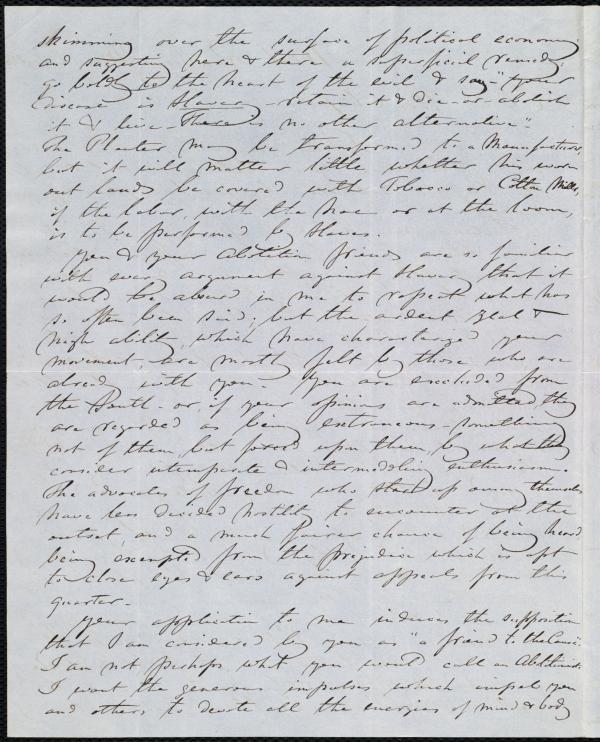 skimming over the surface of political economy
and suggesting here & there a superficial remedy,
go boldly to the heart of the evil & say "your
disease is Slavery - retain it & die - or abolish
it & live - There is no other alternative".
The Planter may be transformed to a Manufacturer,
but it will matter little whether his worn
out lands be covered with Tobacco or Cotton Mills,
if the labor, with the hoe or at the loom,
is to be performed by Slaves.
You & your Abolition friends are so familiar
with every argument against Slavery that it
would be absurd in me to repeat what has
so often been said; but the ardent zeal &
high ability, which have characterized your
movement, are mostly felt by those who are
already with you. You are excluded from
the South - or, if your opinions are admitted, they
are regarded as being extraneous - something
not of them, but forced upon them, by what they
consider intemperate & intermeddling enthusiasm.
The advocates of freedom who stand up among themselves
have less decided hostility to encounter at the
outset, and a much fairer chance of being heard
being exempted from the prejudice which is apt
to close eyes & ears against appeals from this
quarter.
Your application to me induces the supposition
that I am considered by you as "a friend to the Cause".
I am not perhaps what you would call an Abolitionist.
I want the generous impulses which impel you
and others to devote all the energies of mind & body